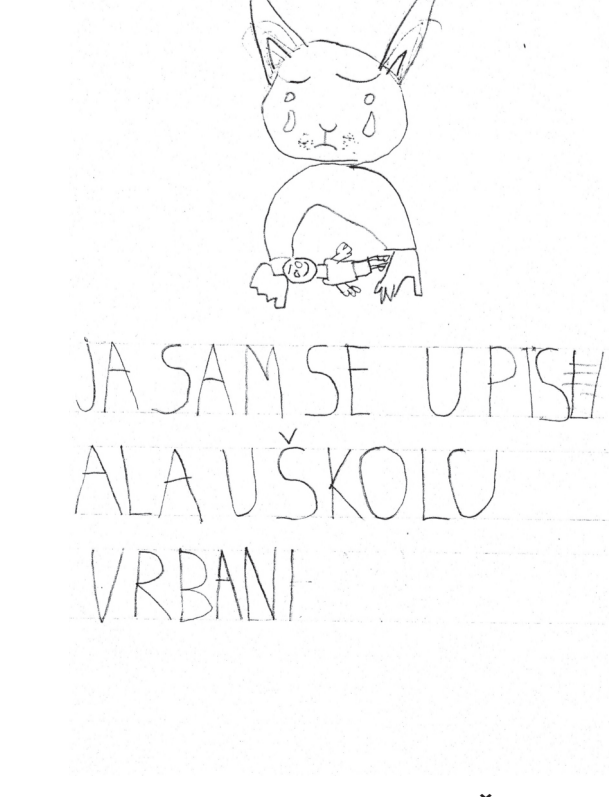 JA SAM SE UPIS
ALA U ŠKOLU
VRBANI